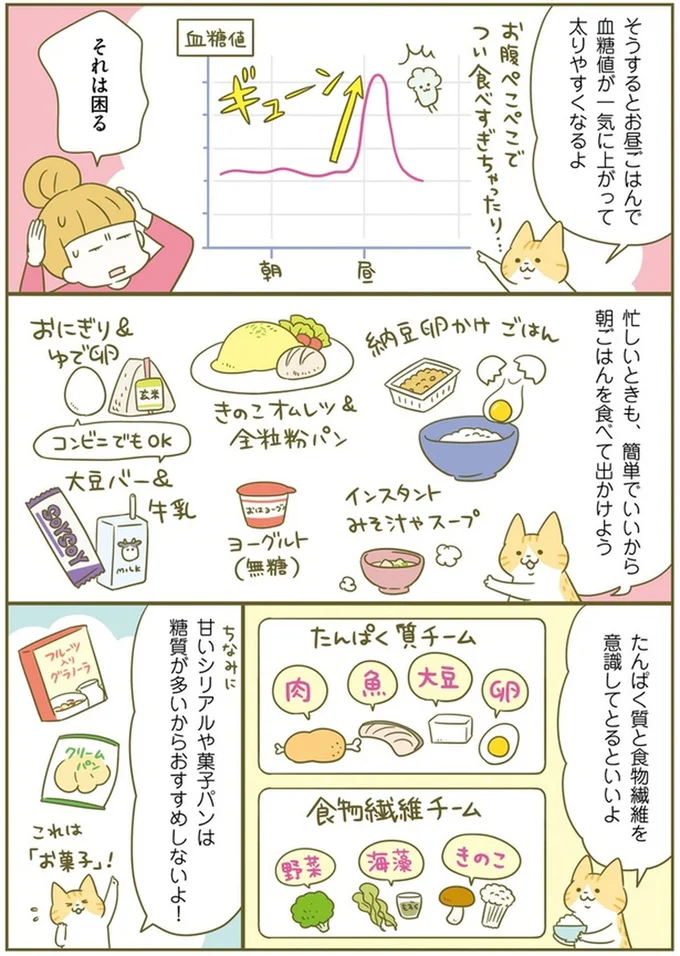 そうするとお昼ごはんで
血糖値が一気に上がって
太りやすくなるよ
お腹ぺこぺこで
つい食べすぎちゃったり…
血糖値
ギューン
朝
昼
それは困る
忙しいときも、簡単でいいから
朝ごはんを食べて出かけよう
納豆卵かけごはん
きのこオムレツ&
全粒粉パン
おにぎり&
ゆで卵
玄米
コンビニでもOK
インスタント
みそ汁やスープ
おはヨーグルト
ヨーグルト
(無糖)
大豆バー&
牛乳
SOYSOY
MILK
たんぱく質と食物繊維を
意識してとるといいよ
たんぱく質チーム
肉
魚
大豆
卵
食物繊維チーム
野菜
海藻
きのこ
もずく
ちなみに
甘いシリアルや菓子パンは
糖質が多いからおすすめしないよ!
フルーツ
入り
グラノーラ
クリーム
パン
これは
「お菓子」!